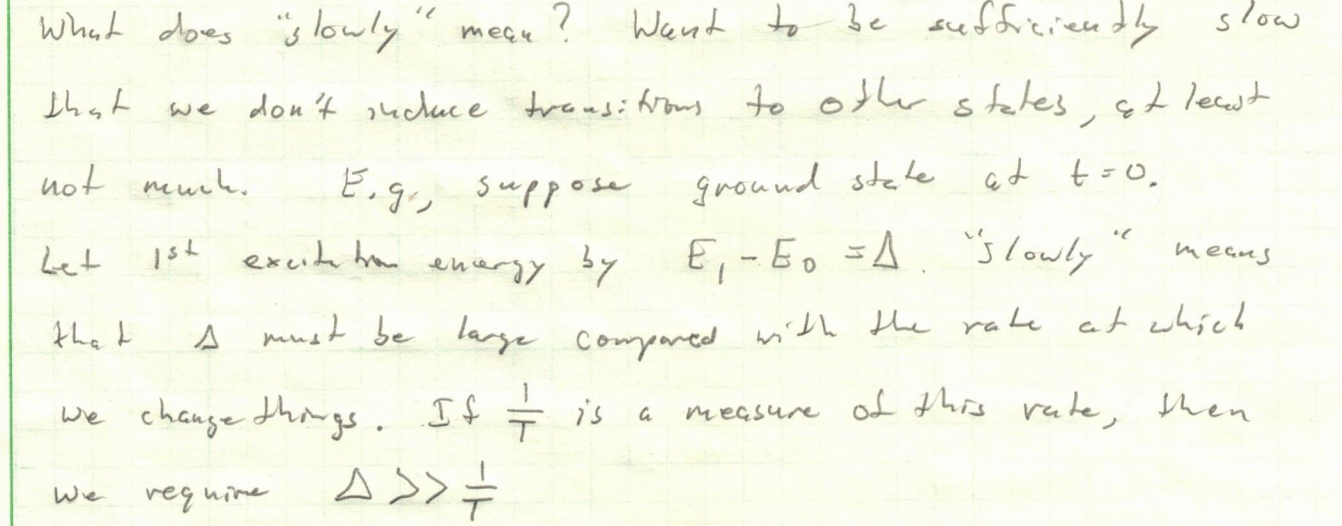 What does "slowly" mean? Want to be sufficiently slow
that we don't induce transitions to other states, at least
not much. E.g., suppose ground state at t=0.
Let 1st excitation energy by E₁-E₀ =Δ. "Slowly" means
that Δ must be large compared with the rate at which
we change things. If 1/T is a measure of this rate, then
we require Δ >> 1/T